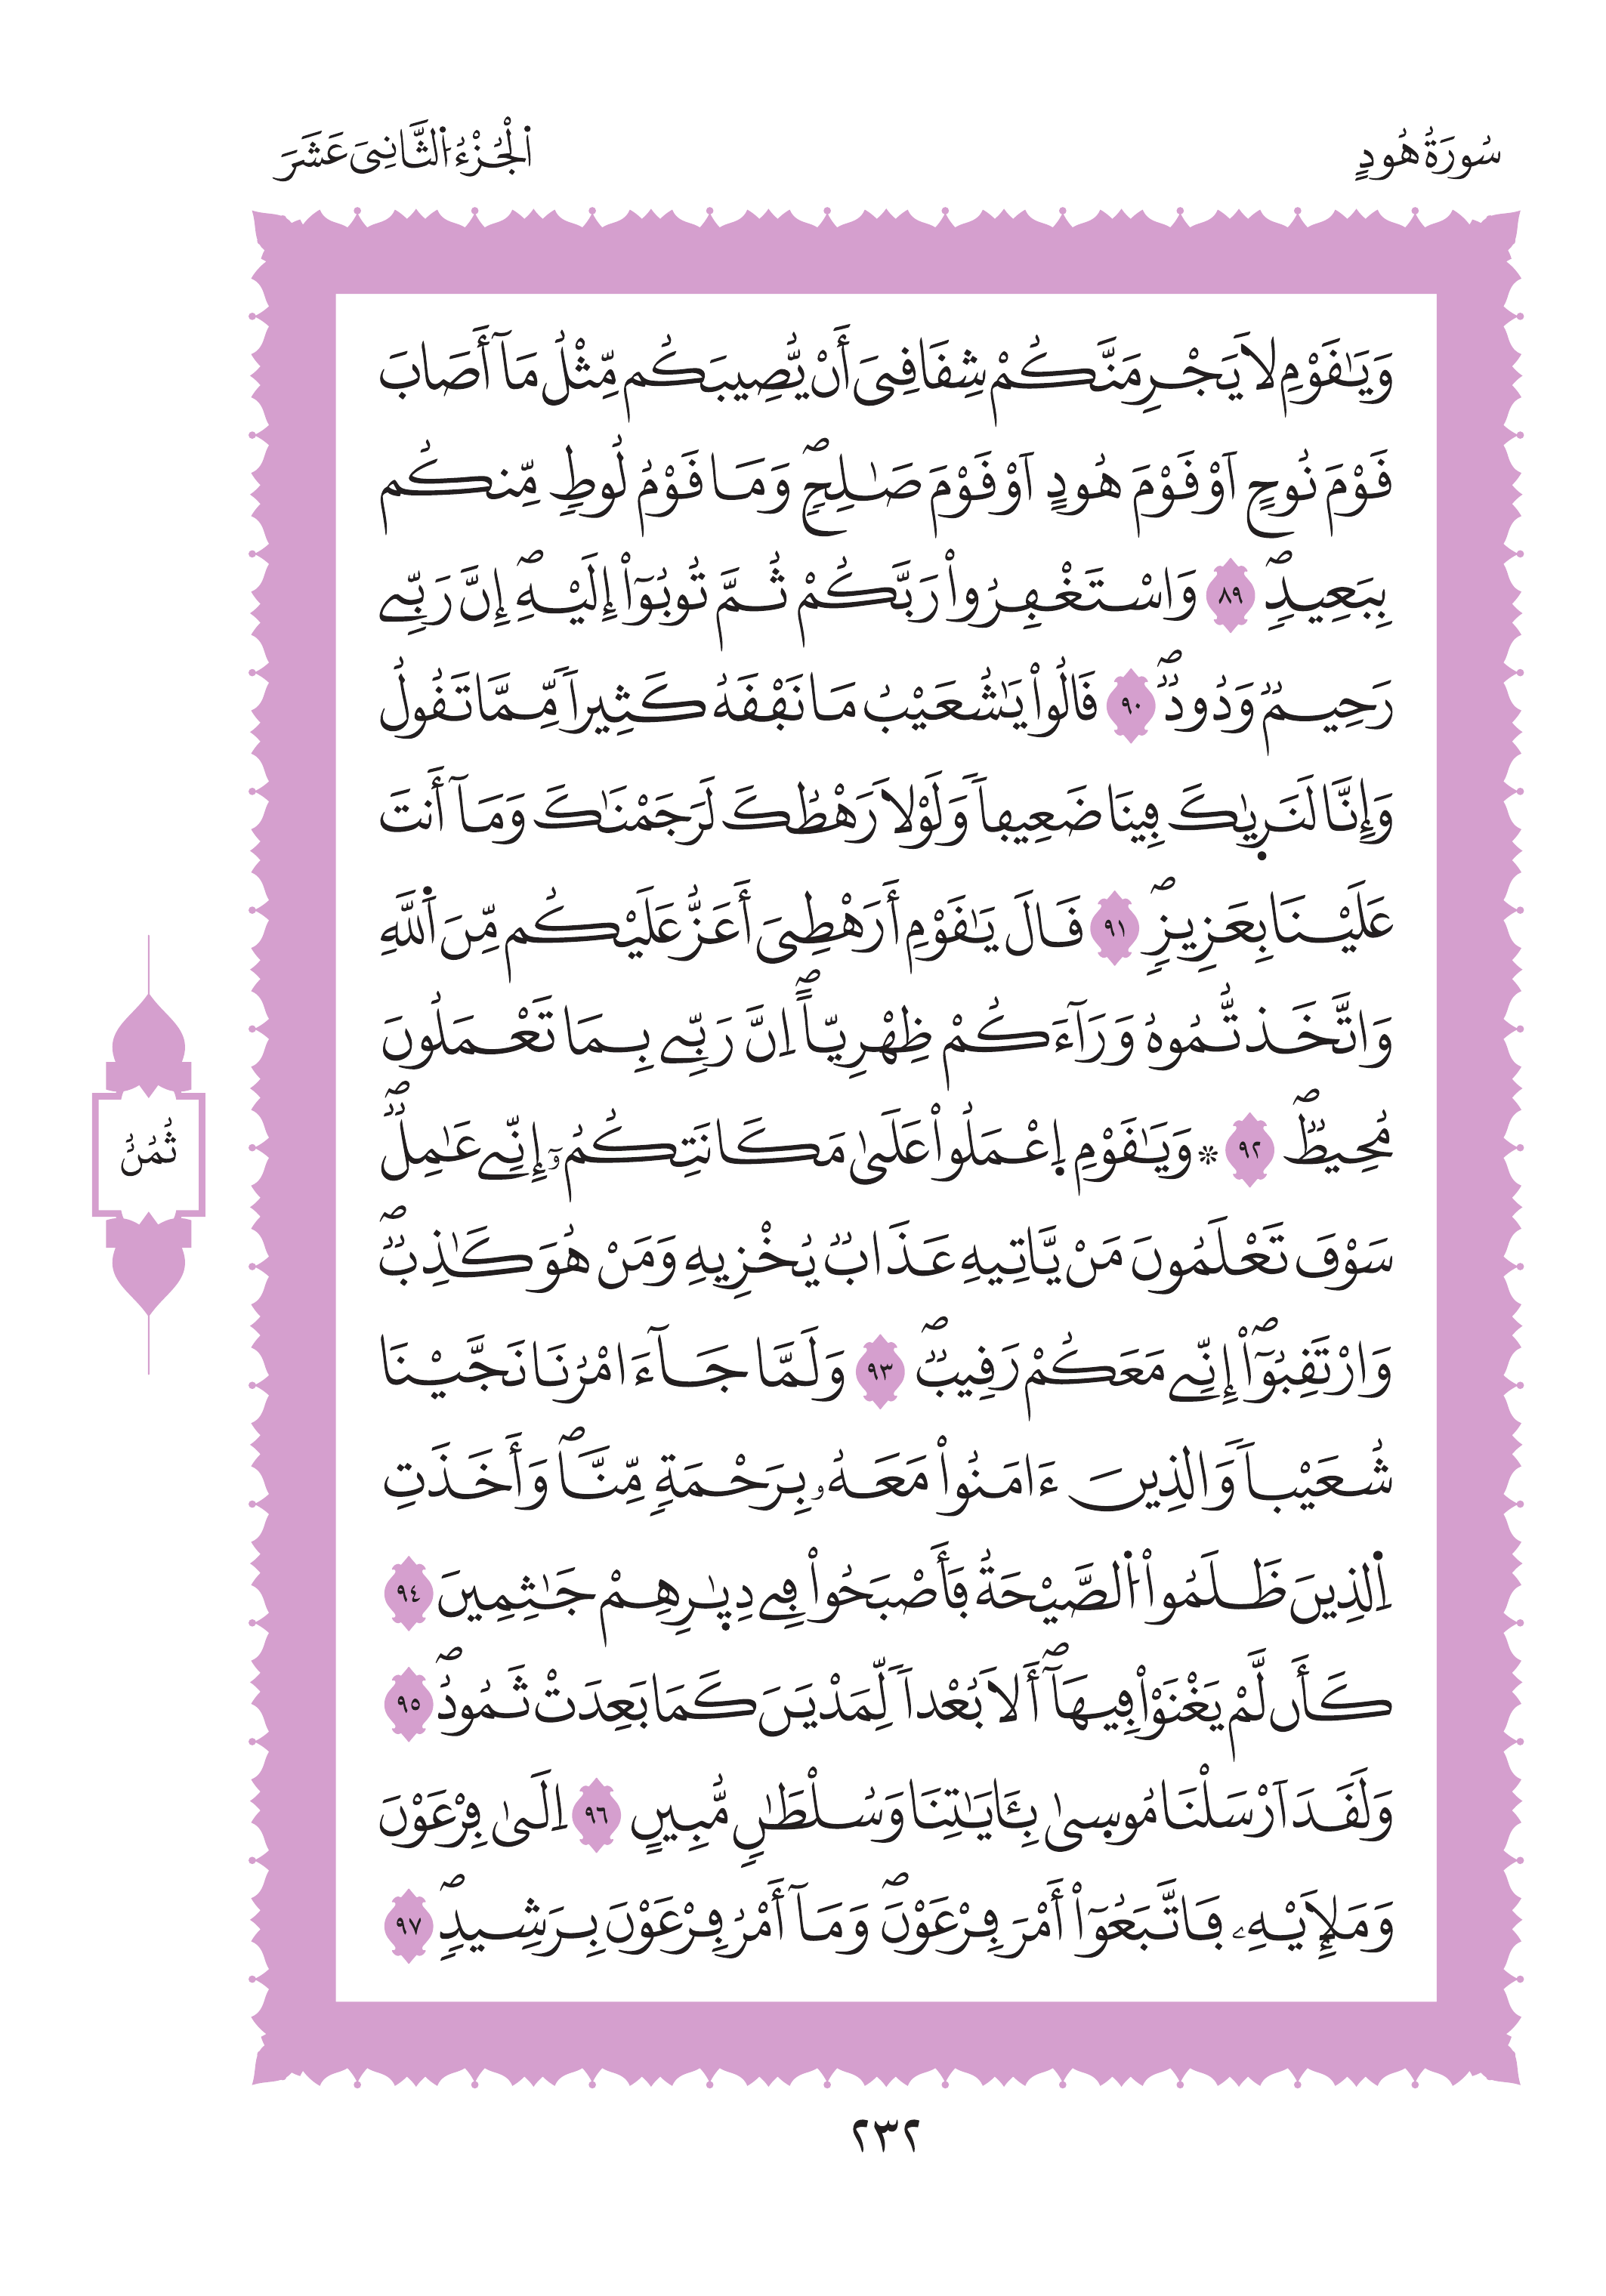 سُورَةُ هُودٍ
اَ۬لْجُزْءُ اُ۬لثَّانِيَ عَشَرَ
وَيَٰقَوْمِ لَا يَجْرِمَنَّكُمْ شِقَاقِيَ أَنْ يُّصِيبَكُم مِّثْلُ مَآ أَصَابَ
قَوْمَ نُوحٍ اَوْ قَوْمَ هُودٍ اَوْ قَوْمَ صَٰلِحٍۖ وَمَا قَوْمُ لُوطٍ مِّنكُم
بِبَعِيدٖۖ ٨٩ وَاسْتَغْفِرُواْ رَبَّكُمْ ثُمَّ تُوبُوٓاْ إِلَيْهِۖ إِنَّ رَبِّے
رَحِيمٞ وَدُودٞۖ ٩٠ قَالُواْ يَٰشُعَيْبُ مَا نَفْقَهُ كَثِيراٗ مِّمَّا تَقُولُ
وَإِنَّا لَنَر۪يٰكَ فِينَا ضَعِيفاٗ وَلَوْلَا رَهْطُكَ لَرَجَمْنَٰكَ وَمَآ أَنتَ
عَلَيْنَا بِعَزِيزٖۖ ٩١ قَالَ يَٰقَوْمِ أَرَهْطِيَ أَعَزُّ عَلَيْكُم مِّنَ اَ۬للَّهِ
وَاتَّخَذتُّمُوهُ وَرَآءَكُمْ ظِهْرِيّاًۖ اِنَّ رَبِّے بِمَا تَعْمَلُونَ
مُحِيطٞۖ ٩٢ ۞ وَيَٰقَوْمِ اِ۪عْمَلُواْ عَلَىٰ مَكَانَتِكُمُۥٓ إِنِّے عَٰمِلٞۖ
سَوْفَ تَعْلَمُونَ مَنْ يَّاتِيهِ عَذَابٞ يُخْزِيهِ وَمَنْ هُوَ كَٰذِبٞۖ
وَارْتَقِبُوٓاْۖ إِنِّے مَعَكُمْ رَقِيبٞۖ ٩٣ وَلَمَّا جَآءَ امْرُنَا نَجَّيْنَا
شُعَيْباٗ وَالذِينَ ءَامَنُواْ مَعَهُۥ بِرَحْمَةٖ مِّنَّاۖ وَأَخَذَتِ
اِ۬لذِينَ ظَلَمُواْ اُ۬لصَّيْحَةُ فَأَصْبَحُواْ فِے دِيٰ۪رِهِمْ جَٰثِمِينَ ٩٤
كَأَن لَّمْ يَغْنَوْاْ فِيهَآۖ أَلَا بُعْداٗ لِّمَدْيَنَ كَمَا بَعِدَتْ ثَمُودُۖ ٩٥
وَلَقَدَ اَرْسَلْنَا مُوس۪يٰ بِـَٔايَٰتِنَا وَسُلْطَٰنٖ مُّبِينٍ ٩٦ اِلَىٰ فِرْعَوْنَ
وَمَلَإِيْهِۦ فَاتَّبَعُوٓاْ أَمْرَ فِرْعَوْنَۖ وَمَآ أَمْرُ فِرْعَوْنَ بِرَشِيدٖۖ ٩٧
ثُمُنُ
٢٣٢